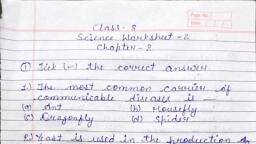 Page No.
Date
Class - 8
Science Worksheet - 2
Chapter - 2
① Tick (✓) the correct answer
1.) The most common carrier of
communicable diseases is —
(a) Ant (b) Housefly
(c) Dragonfly (d) Spider
2.) Yeast is used in the production of